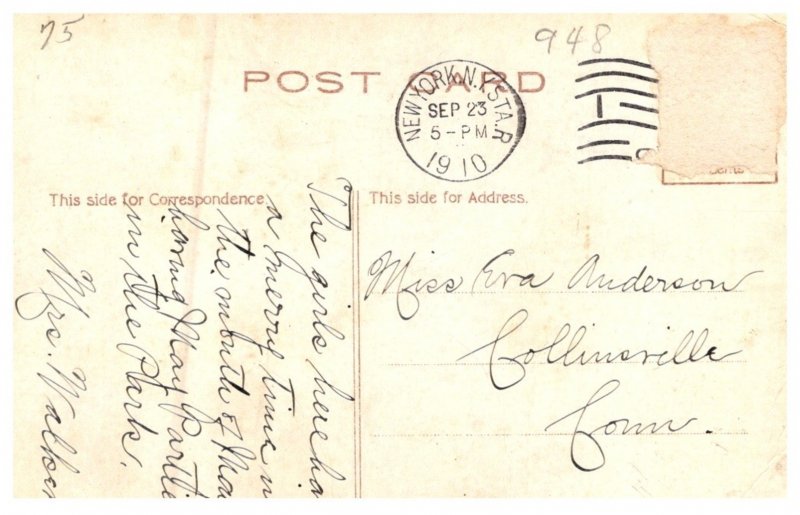 75
948
POST CARD
NEW YORK, N.Y. STA. R
SEP 23
5-PM
1910
This side for Correspondence
This side for Address.
The girls here ha
a merry time
the month of Ma
having May Parti
in the Park.
Mrs. Walke
Miss Eva Anderson
Collinsville
Conn.